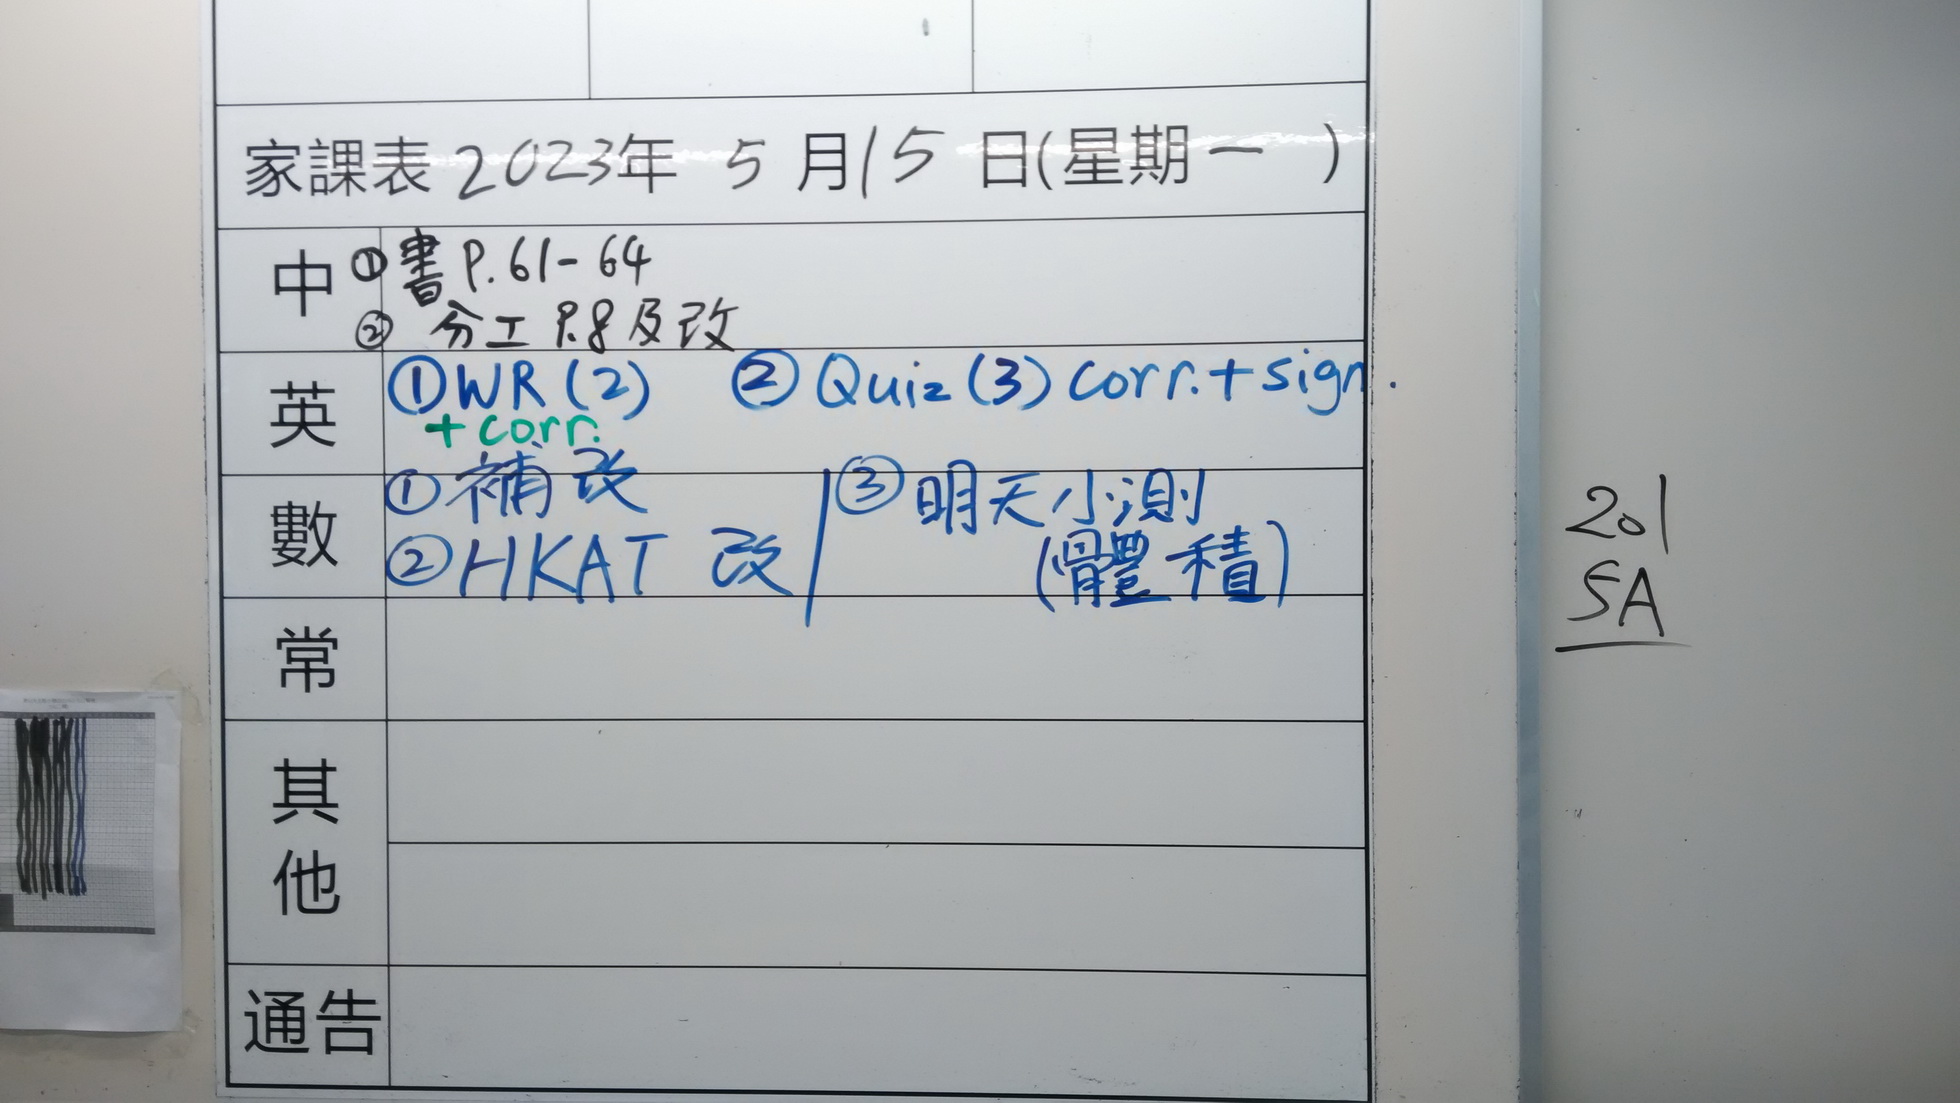 家課表 2023年 5 月 15 日(星期 一 )
中 ① 書 P.61-64
② 分工 P.8 及改
英 ① WR (2) ② Quiz (3) corr. + sign.
+ corr.
數 ① 補改 ③ 明天小測
② HKAT 改 (體積)
常
其他
通告
201
5A